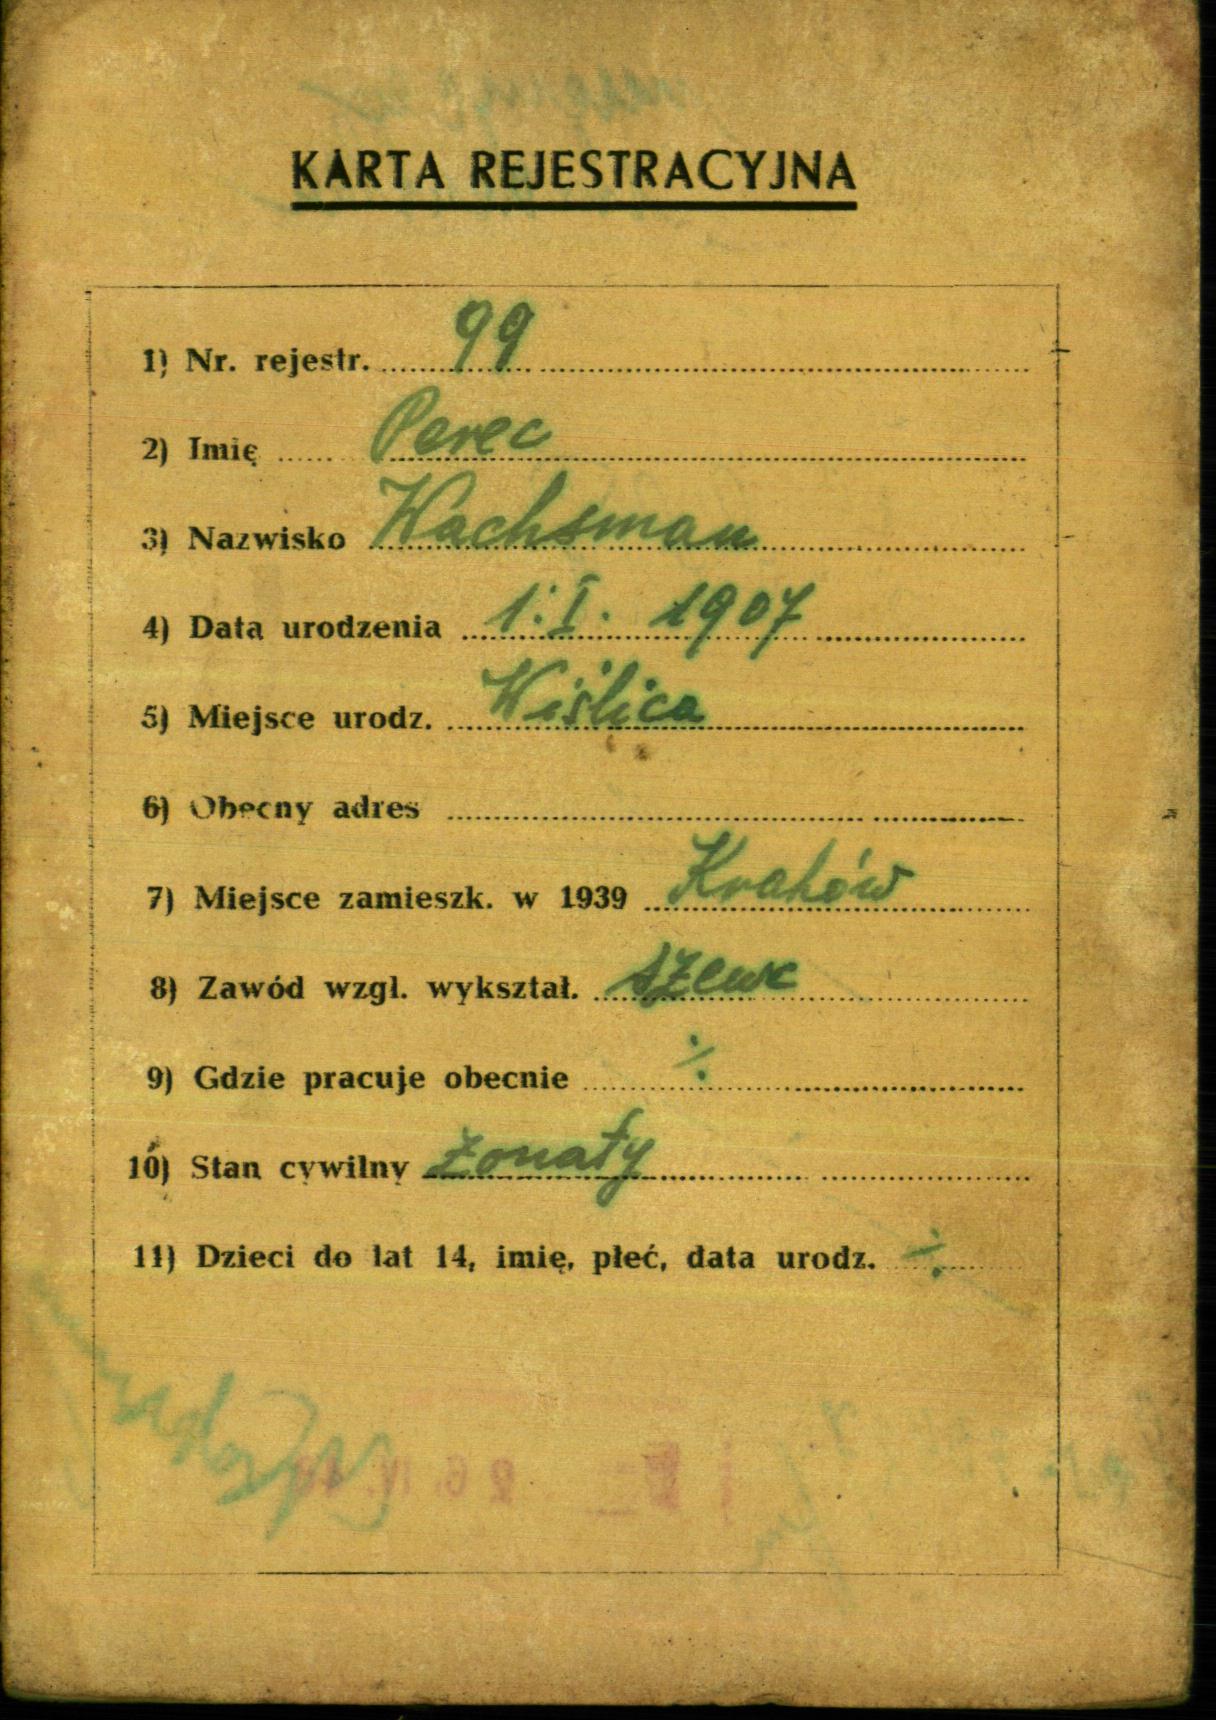 KARTA REJESTRACYJNA
1) Nr. rejestr. 99
2) Imię Perec
3) Nazwisko Wachsman
4) Data urodzenia 1. I. 1907
5) Miejsce urodz. Wiślica
6) Obecny adres
7) Miejsce zamieszk. w 1939 Kraków
8) Zawód wzgl. wykształ. szewc
9) Gdzie pracuje obecnie ÷
10) Stan cywilny żonaty
11) Dzieci do lat 14, imię, płeć, data urodz. ÷